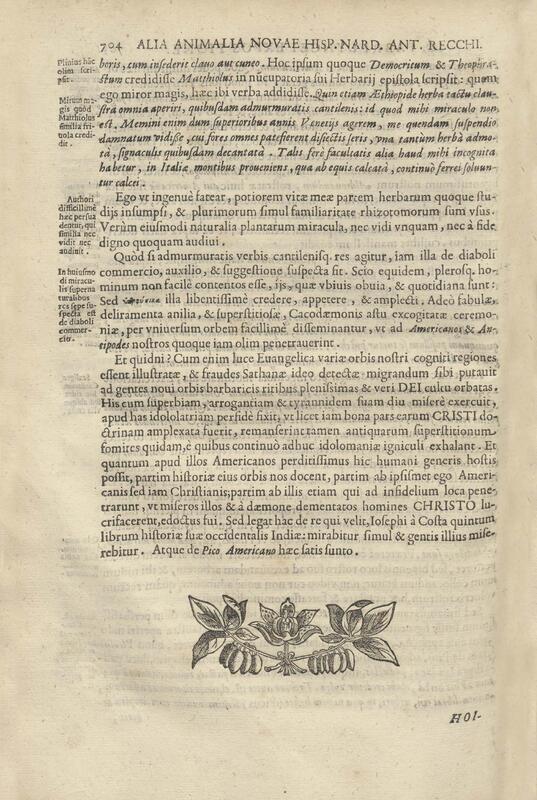 704 ALIA ANIMALIA NOVAE HISP. NARD. ANT. RECCHI.
Plinius hāc
olim scri-
psit.
Mirum ma-
gis quod
Matthiolus
similia fri-
tola credi-
dit.
boris, cum insederit clauo aut cuneo. Hoc ipsum quoque Democritum & Theophra-
stum credidisse Matthiolus in nūcupatoria sui Herbarij epistola scripsit: quem
ego miror magis, hæc ibi verba addidisse. Quin etiam Æthiopide herba tactu clau-
stra omnia aperiri, quibusdam admurmuratis cantilenis: id quod mihi miraculo non
est. Memini enim dum superioribus annis Venetijs agerem, me quendam suspendio
damnatum vidisse, cui fores omnes patefierent disiectis seris, vna tantùm herbâ admo-
tâ, signaculis quibusdam decantatâ. Talis ferè facultatis alia haud mihi incognita
habetur, in Italiæ montibus proueniens, qua ab equis calcatâ, continuò ferrei soluun-
tur calcei.
Authori
difficillimè
hæc persua
dentur, qui
similia nec
vidit nec
audiuit.
Ego vt ingenuè fatear, potiorem vitæ meæ partem herbarum quoque stu-
dijs insumpsi, & plurimorum simul familiaritate rhizotomorum sum vsus.
Verùm eiusmodi naturalia plantarum miracula, nec vidi vnquam, nec à fide
digno quoquam audiui.
In huiusmo
di miracu-
lis superna
turalibus
res sepe su-
specta est
de diaboli
commer-
cio.
Quòd si admurmuratis verbis cantilenisq. res agitur, iam illa de diaboli
commercio, auxilio, & suggestione suspecta sit. Scio equidem, plerosq. ho-
minum non facilè contentos esse, ijs, quæ vbiuis obuia, & quotidiana sunt:
Sed illa libentissimè credere, appetere, & amplecti. Adeò fabulæ,
deliramenta anilia, & superstitiosæ, Cacodæmonis astu excogitatæ ceremo-
niæ, per vniuersum orbem facillimè disseminantur, vt ad Americanos & An-
tipodes nostros quoque iam olim penetrauerint.
Et quidni? Cum enim luce Euangelica variæ orbis nostri cogniti regiones
essent illustratæ, & fraudes Sathanæ ideo detectæ migrandum sibi putauit
ad gentes noui orbis barbaricis ritibus plenissimas & veri DEI cultu orbatas.
His cum superbiam, arrogantiam & tyrannidem suam diu miserè exercuit,
apud has idololatriam perfidè fixit, vt licet iam bona pars earum CRISTI do-
ctrinam amplexata fuerit, remanserint tamen antiquarum superstitionum
fomites quidam, è quibus continuò adhuc idolomaniæ igniculi exhalant. Et
quantum apud illos Americanos perditissimus hic humani generis hostis
possit, partim historiæ eius orbis nos docent, partim ab ipsismet ego Ameri-
canis sed iam Christianis; partim ab illis etiam qui ad infidelium loca pene-
trarunt, vt miseros illos & à dæmone dementatos homines CHRISTO lu-
crifacerent, edoctus fui. Sed legat hāc de re qui velit, Iosephi à Costa quintum
librum historiæ suæ occidentalis Indiæ: mirabitur simul & gentis illius mise-
rebitur. Atque de Pico Americano hæc satis sunto.
HOI-